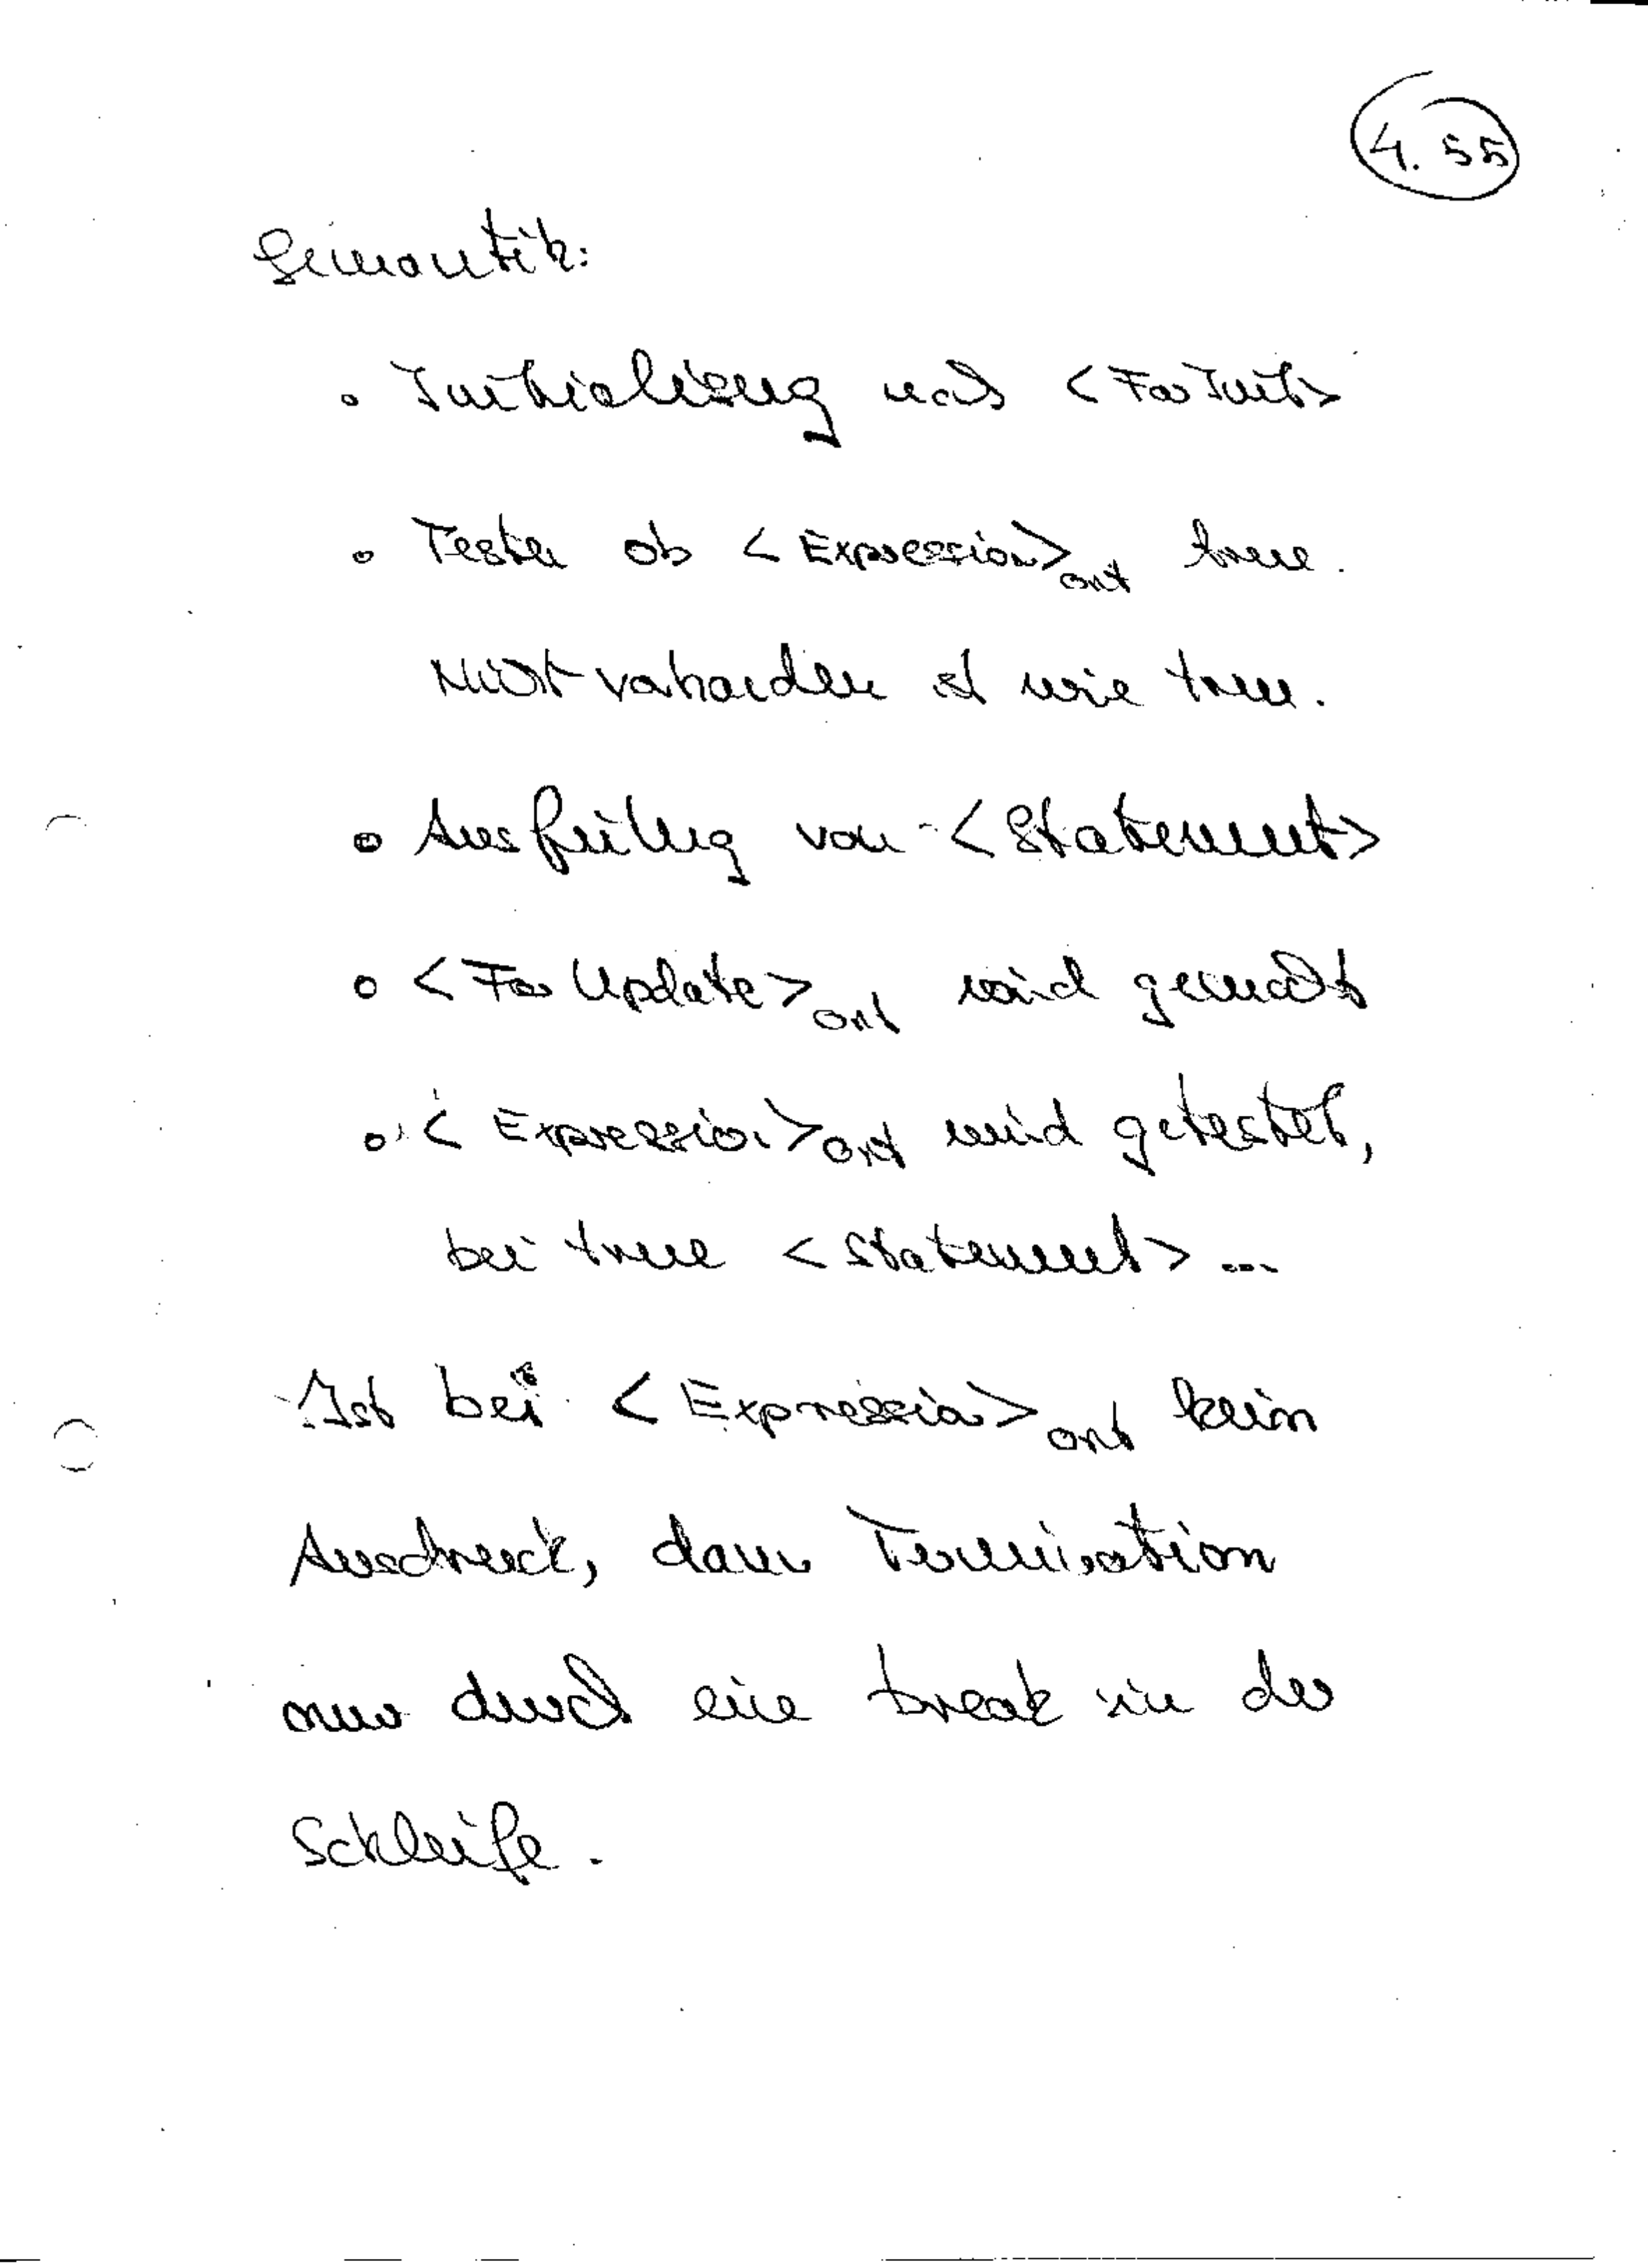 4.55
Semantik:
• Initialisierung nach <ForInit>
• Testen ob <Expression>opt true.
Nicht vorhanden ist wie true.
• Ausführung von <Statement>
• <For Update>opt wird gemacht
• <Expression>opt wird getestet,
bei true <Statement> ...
Ist bei <Expression>opt kein
Ausdruck, dann Termination
nur durch ein break in der
Schleife.